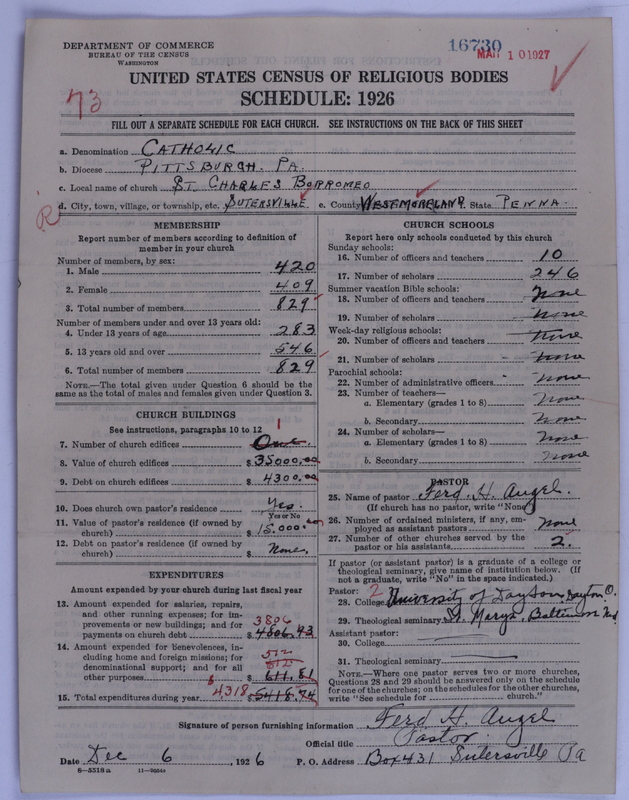 DEPARTMENT OF COMMERCE
BUREAU OF THE CENSUS
WASHINGTON
16730
MAR 10 1927
UNITED STATES CENSUS OF RELIGIOUS BODIES
SCHEDULE: 1926
73
FILL OUT A SEPARATE SCHEDULE FOR EACH CHURCH. SEE INSTRUCTIONS ON THE BACK OF THIS SHEET
a. Denomination CATHOLIC
b. Diocese PITTSBURGH. PA.
c. Local name of church ST. CHARLES BORROMEO
d. City, town, village, or township, etc. SUTERSVILLE e. County WESTMORELAND f. State PENNA.
R
MEMBERSHIP
Report number of members according to definition of member in your church
Number of members, by sex:
1. Male 420
2. Female 409
3. Total number of members 829
Number of members under and over 13 years old:
4. Under 13 years of age 283
5. 13 years old and over 546
6. Total number of members 829
NOTE.—The total given under Question 6 should be the same as the total of males and females given under Question 3.
CHURCH BUILDINGS
See instructions, paragraphs 10 to 12
1
7. Number of church edifices One.
8. Value of church edifices $ 35000.00
9. Debt on church edifices $ 4300.00
10. Does church own pastor's residence Yes.
Yes or No
11. Value of pastor's residence (if owned by church) $ 15.000.00
12. Debt on pastor's residence (if owned by church) $ None.
EXPENDITURES
Amount expended by your church during last fiscal year
13. Amount expended for salaries, repairs, and other running expenses; for improvements or new buildings; and for payments on church debt 3806 $ 4806.93
14. Amount expended for benevolences, including home and foreign missions; for denominational support; and for all other purposes 512 612 $ 611.81
15. Total expenditures during year 4318 $ 5418.74
CHURCH SCHOOLS
Report here only schools conducted by this church
Sunday schools:
16. Number of officers and teachers 10
17. Number of scholars 246
Summer vacation Bible schools:
18. Number of officers and teachers None
19. Number of scholars None
Week-day religious schools:
20. Number of officers and teachers None
21. Number of scholars None
Parochial schools:
22. Number of administrative officers None
23. Number of teachers—
a. Elementary (grades 1 to 8) None
b. Secondary None
24. Number of scholars—
a. Elementary (grades 1 to 8) None
b. Secondary None
PASTOR
25. Name of pastor Ferd. H. Angel.
(If church has no pastor, write "None")
26. Number of ordained ministers, if any, employed as assistant pastors None
27. Number of other churches served by the pastor or his assistants 2.
If pastor (or assistant pastor) is a graduate of a college or theological seminary, give name of institution below. (If not a graduate, write "No" in the space indicated.)
Pastor: 2
28. College University of Dayton, Dayton O.
29. Theological seminary St. Marys, Baltimore Md
Assistant pastor:
30. College
31. Theological seminary
NOTE.—Where one pastor serves two or more churches, Questions 28 and 29 should be answered only on the schedule for one of the churches; on the schedules for the other churches, write "See schedule for church."
Signature of person furnishing information Ferd H. Angel
Official title Pastor.
Date Dec 6, 1926 P. O. Address Box 431 Sutersville Pa
8-5518a